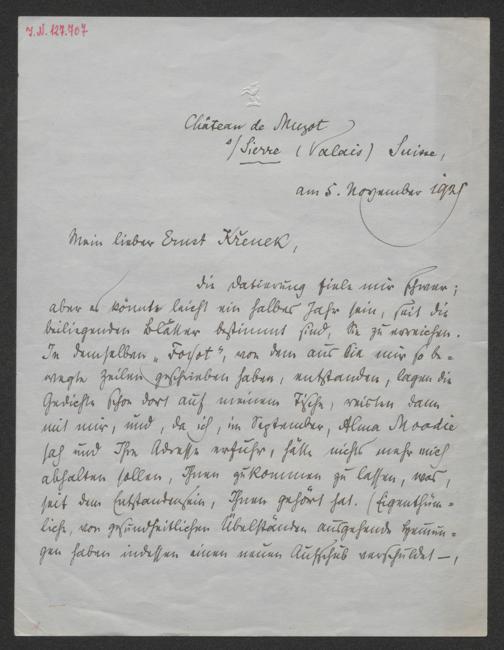 I.N. 127.707
Château de Muzot
s/ Sierre (Valais) Suisse,
am 5. November 1925
Mein lieber Ernst Křenek,
die Datierung fiele mir schwer;
aber es könnte leicht ein halbes Jahr sein, seit die
beiliegenden Blätter bestimmt sind, Sie zu erreichen.
In demselben „Foyot“, von dem aus Sie mir so be-
wegte Zeilen geschrieben haben, entstanden, lagen die
Gedichte schon dort auf meinem Tische, reisten dann
mit mir, und, da ich, im September, Alma Moodie
sah und Ihre Adresse erfuhr, hätte nichts mehr mich
abhalten sollen, Ihnen zukommen zu lassen, was,
seit dem Entstandensein, Ihnen gehört hat. (Eigenthüm-
liche, von gesundheitlichen Übelständen ausgehende Hemmun-
gen haben indessen einen neuen Aufschub verschuldet –,